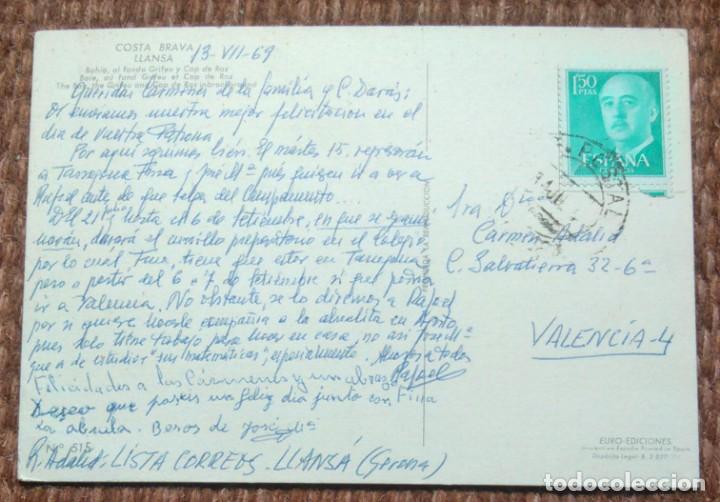 COSTA BRAVA
LLANSA 13-VII-69
Bahía, al fondo Grifeu y Cap de Ras
Baie, au fond Grifeu et Cap de Ras
The bay, the Grifeu and Cap de Ras
Queridas Cármenes de la familia y C.
Os enviamos nuestra mejor felicitación en el
día de vuestra Patrona.
Por aquí seguimos bien. El martes 15, regresarán
a Tarragona y José Mª pués quieren ir a ver a
Rafael antes de que salga del Campamento.
Del 21 hasta el 6 de setiembre, en que se
dará el cursillo preparatorio en el Colegio
por lo cual tiene que estar en Tarragona
pero a partir del 6 o 7 de setiembre si que podría
ir a Valencia. No obstante se lo diremos a Rafael
por si quiere hacerle compañía a la abuelita en Agosto,
pues solo tiene trabajo para unos en casa, no así José Mª
que a de estudiar "sus matemáticas", especialmente. Abrazos a todos
Felicidades a las Cármenes y un abrazo Rafael
Deseo que paseis un feliz día junto con
La abuela. Besos de José Mª
Nº 515
R. Adalid: LISTA CORREOS. LLANSÁ (Gerona)
PROHIBIDA LA REPRODUCCION
1,50
PTAS
ESPAÑA
CORREOS
Sra. Dña
Cármen Adalid
C. Salvatierra 32-6ª
VALENCIA-4
EURO-EDICIONES
Impreso en España Printed in Spain
Depósito Legal B.
todocoleccion